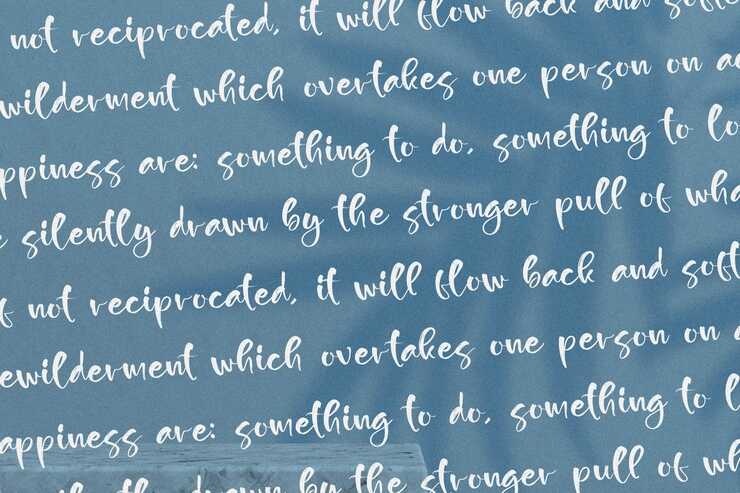 not reciprocated, it will flow back and soft
wilderment which overtakes one person on a
ppiness are: something to do, something to lo
silently drawn by the stronger pull of wha
f not reciprocated, it will flow back and soft
ewilderment which overtakes one person on
appiness are: something to do, something to l
drawn by the stronger pull of wh